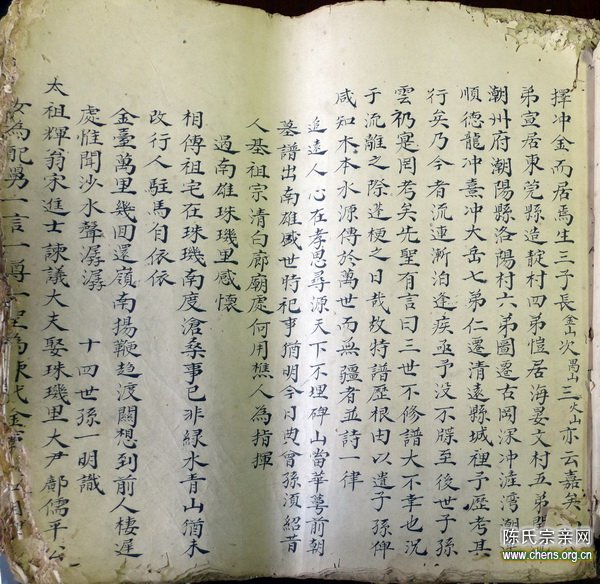 擇冲金而居焉生三子長金山次禺山三火山亦云嘉矣
弟宣居東莞縣造靛村四弟愷居海晏文村五弟
潮州府潮陽縣洛陽村六弟圖遷古岡泳冲漄湾潮
順德龍冲熹冲大岳七弟仁遷清遠縣城裡予歷考其
行矣乃今者流連漸泊逢疾亟予没不牒至後世子孫
雲礽寔罔考矣先聖有言曰三世不修譜大不幸也况
于流離之際蓬梗之日哉故特譜歷根由以遺子孫俾
咸知木本水源傳於萬世而無疆者並詩一律
追遠人心在孝思尋源天下不埋碑山當華萼前朝
墓譜出南雄盛世特祀事猶明今日典會孫須紹昔
人基祖宗清白廊廟處何用樵人為指揮
過南雄珠璣里感懷
相傳祖宅在珠璣南度滄桑事已非緑水青山猶未
改行人駐馬自依依
金臺萬里幾回還嶺南揚鞭趂渡關想到前人棲遲
處惟聞沙水聲潺潺 十四世孫一明識
太祖輝翁宋進士諫議大夫娶珠璣里大尹鄺儒平公
女為配男一言一尊一聖為陳氏金
陈氏宗亲网
www.chens.org.cn